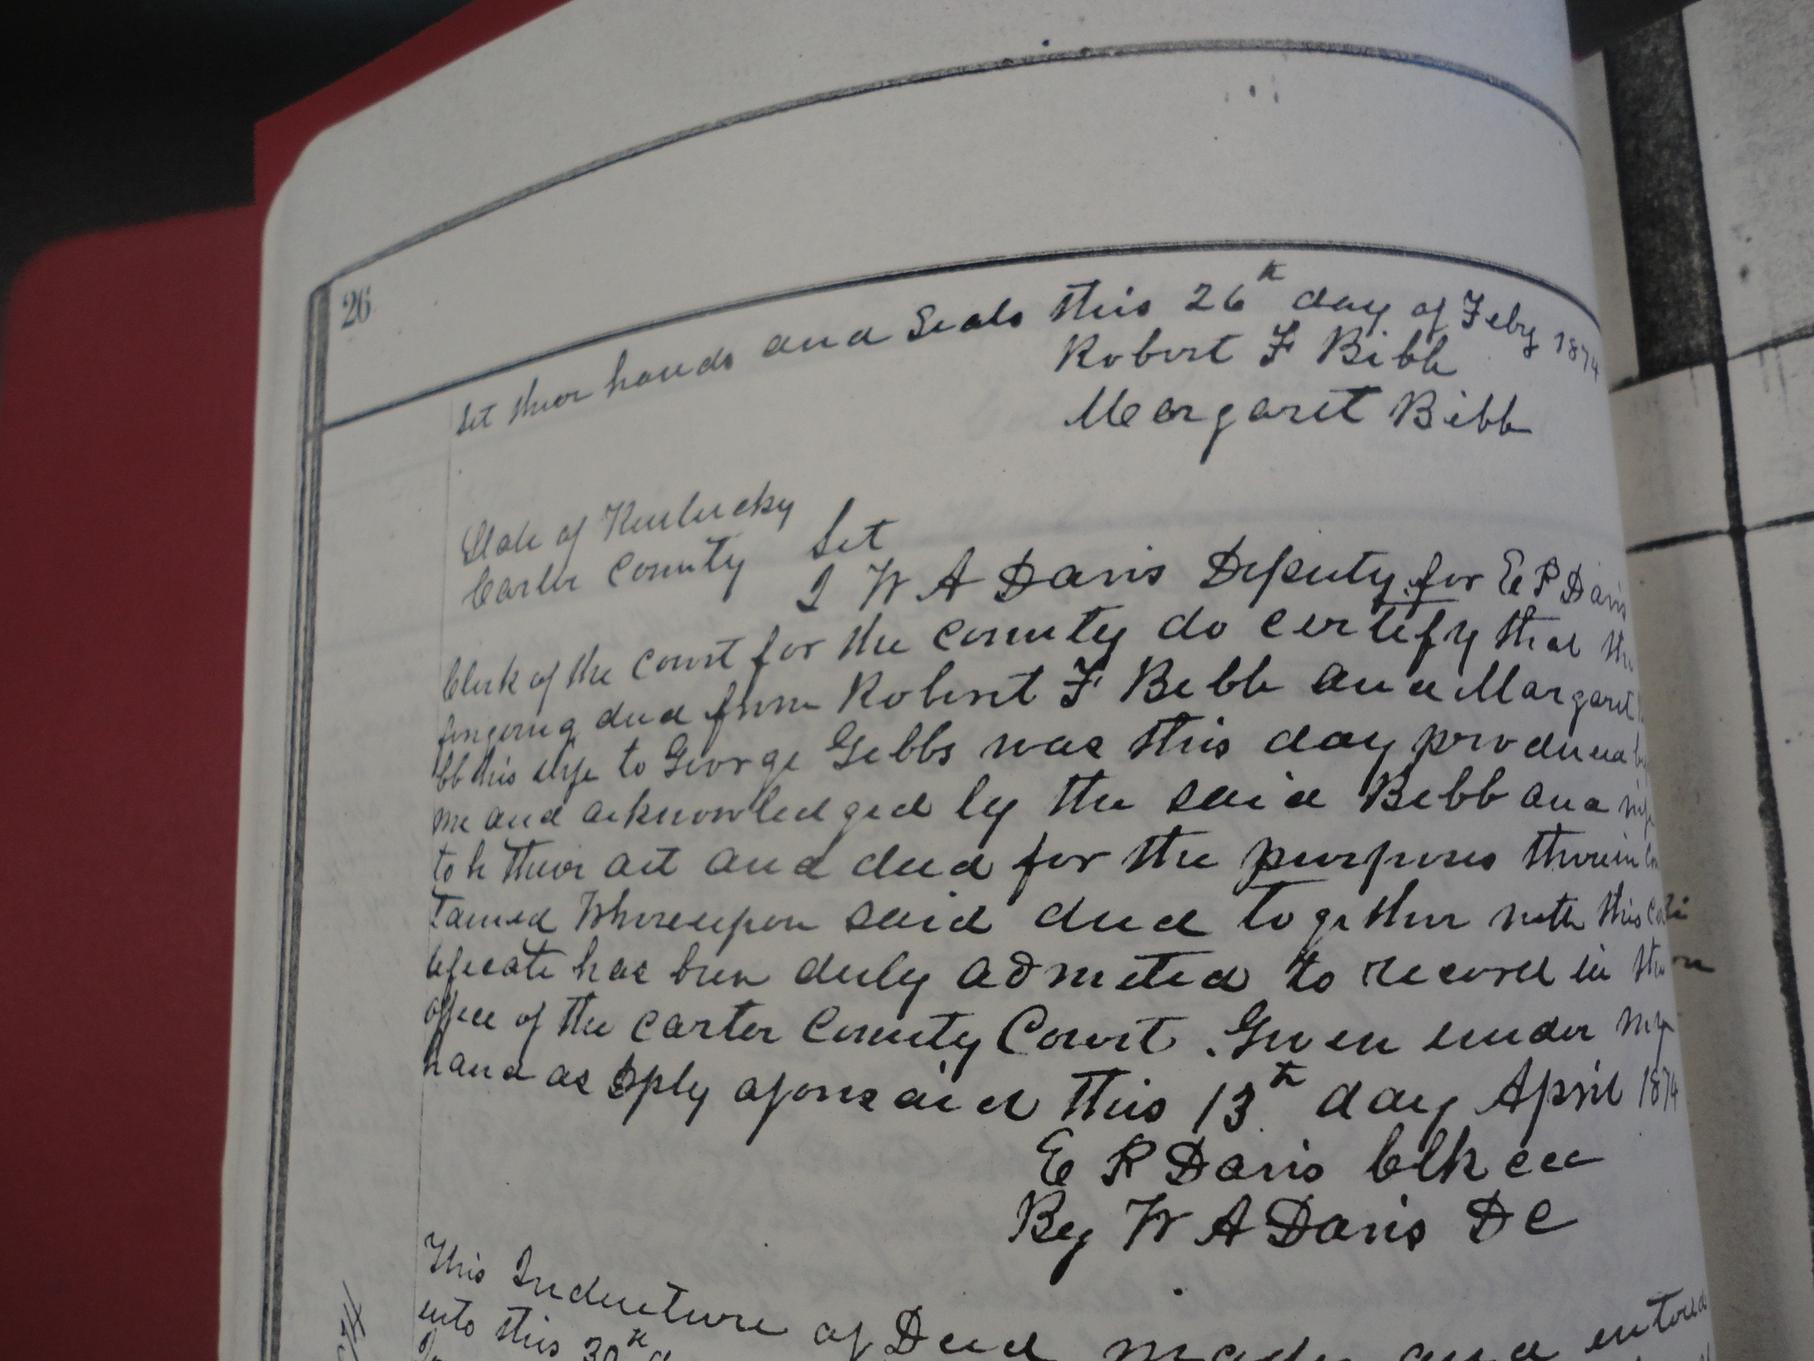 26
Set their hands and Seals this 26th day of Feby 1874
Robert F Bibb
Margaret Bibb
State of Kentucky
Carter County Sct
I W A Davis Deputy for E P Davis
Clerk of the court for the county do certify that the
foregoing deed from Robert F Bibb and Margaret
bb his wife to George Gibbs was this day produced
me and acknowledged by the said Bibb and wife
to be their act and deed for the purposes therein con
tained Whereupon said deed together with this certi
ficate has been duly admeted to record in the
office of the Carter County Court. Given under my
hand as Dpty aforesaid this 13th day April 1874
E P Davis Clk ccc
By W A Davis D C
This Indenture of Deed made and entered
into this 30th